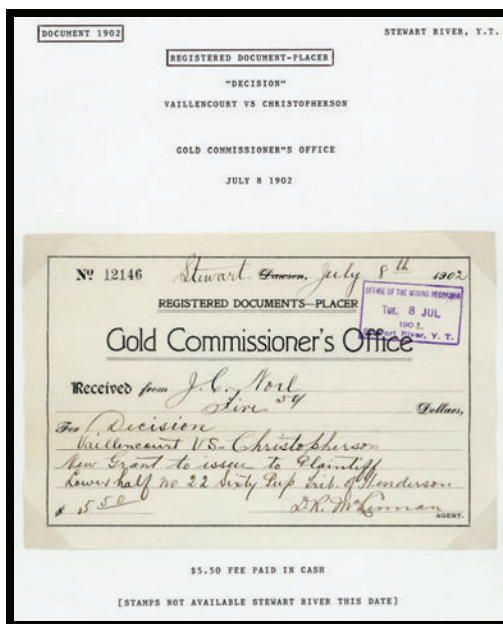 DOCUMENT 1902
STEWART RIVER, Y.T.
REGISTERED DOCUMENT-PLACER
"DECISION"
VAILLENCOURT VS CHRISTOPHERSON
GOLD COMMISSIONER"S OFFICE
JULY 8 1902
No 12146 Stewart Dawson, July 8th 1902
REGISTERED DOCUMENTS—PLACER
OFFICE OF THE MINING RECORDER
TUE. 8 JUL
1902
Stewart River, Y. T.
Gold Commissioner's Office
Received from J.C. Noel
Five 50 Dollars,
For Decision
Vaillencourt VS-Christopherson
New Grant to issue to Plaintiff
Lower half no 22 Sixty Pup Trib. of Henderson
$ 5 50 D.R. McLennan
AGENT.
$5.50 FEE PAID IN CASH
[STAMPS NOT AVAILABLE STEWART RIVER THIS DATE]